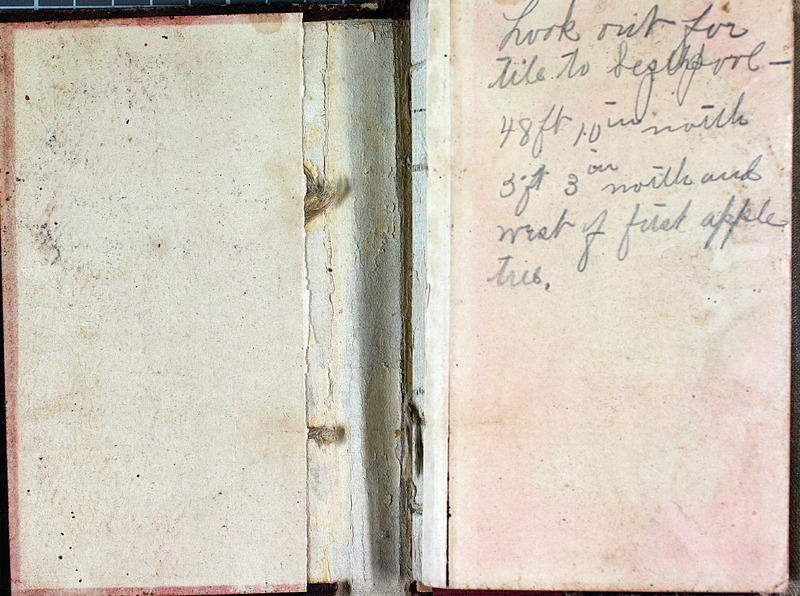 Look out for
tile to cesspool —
48 ft 10 in north
5 ft 3 in north and
west of first apple
tree.